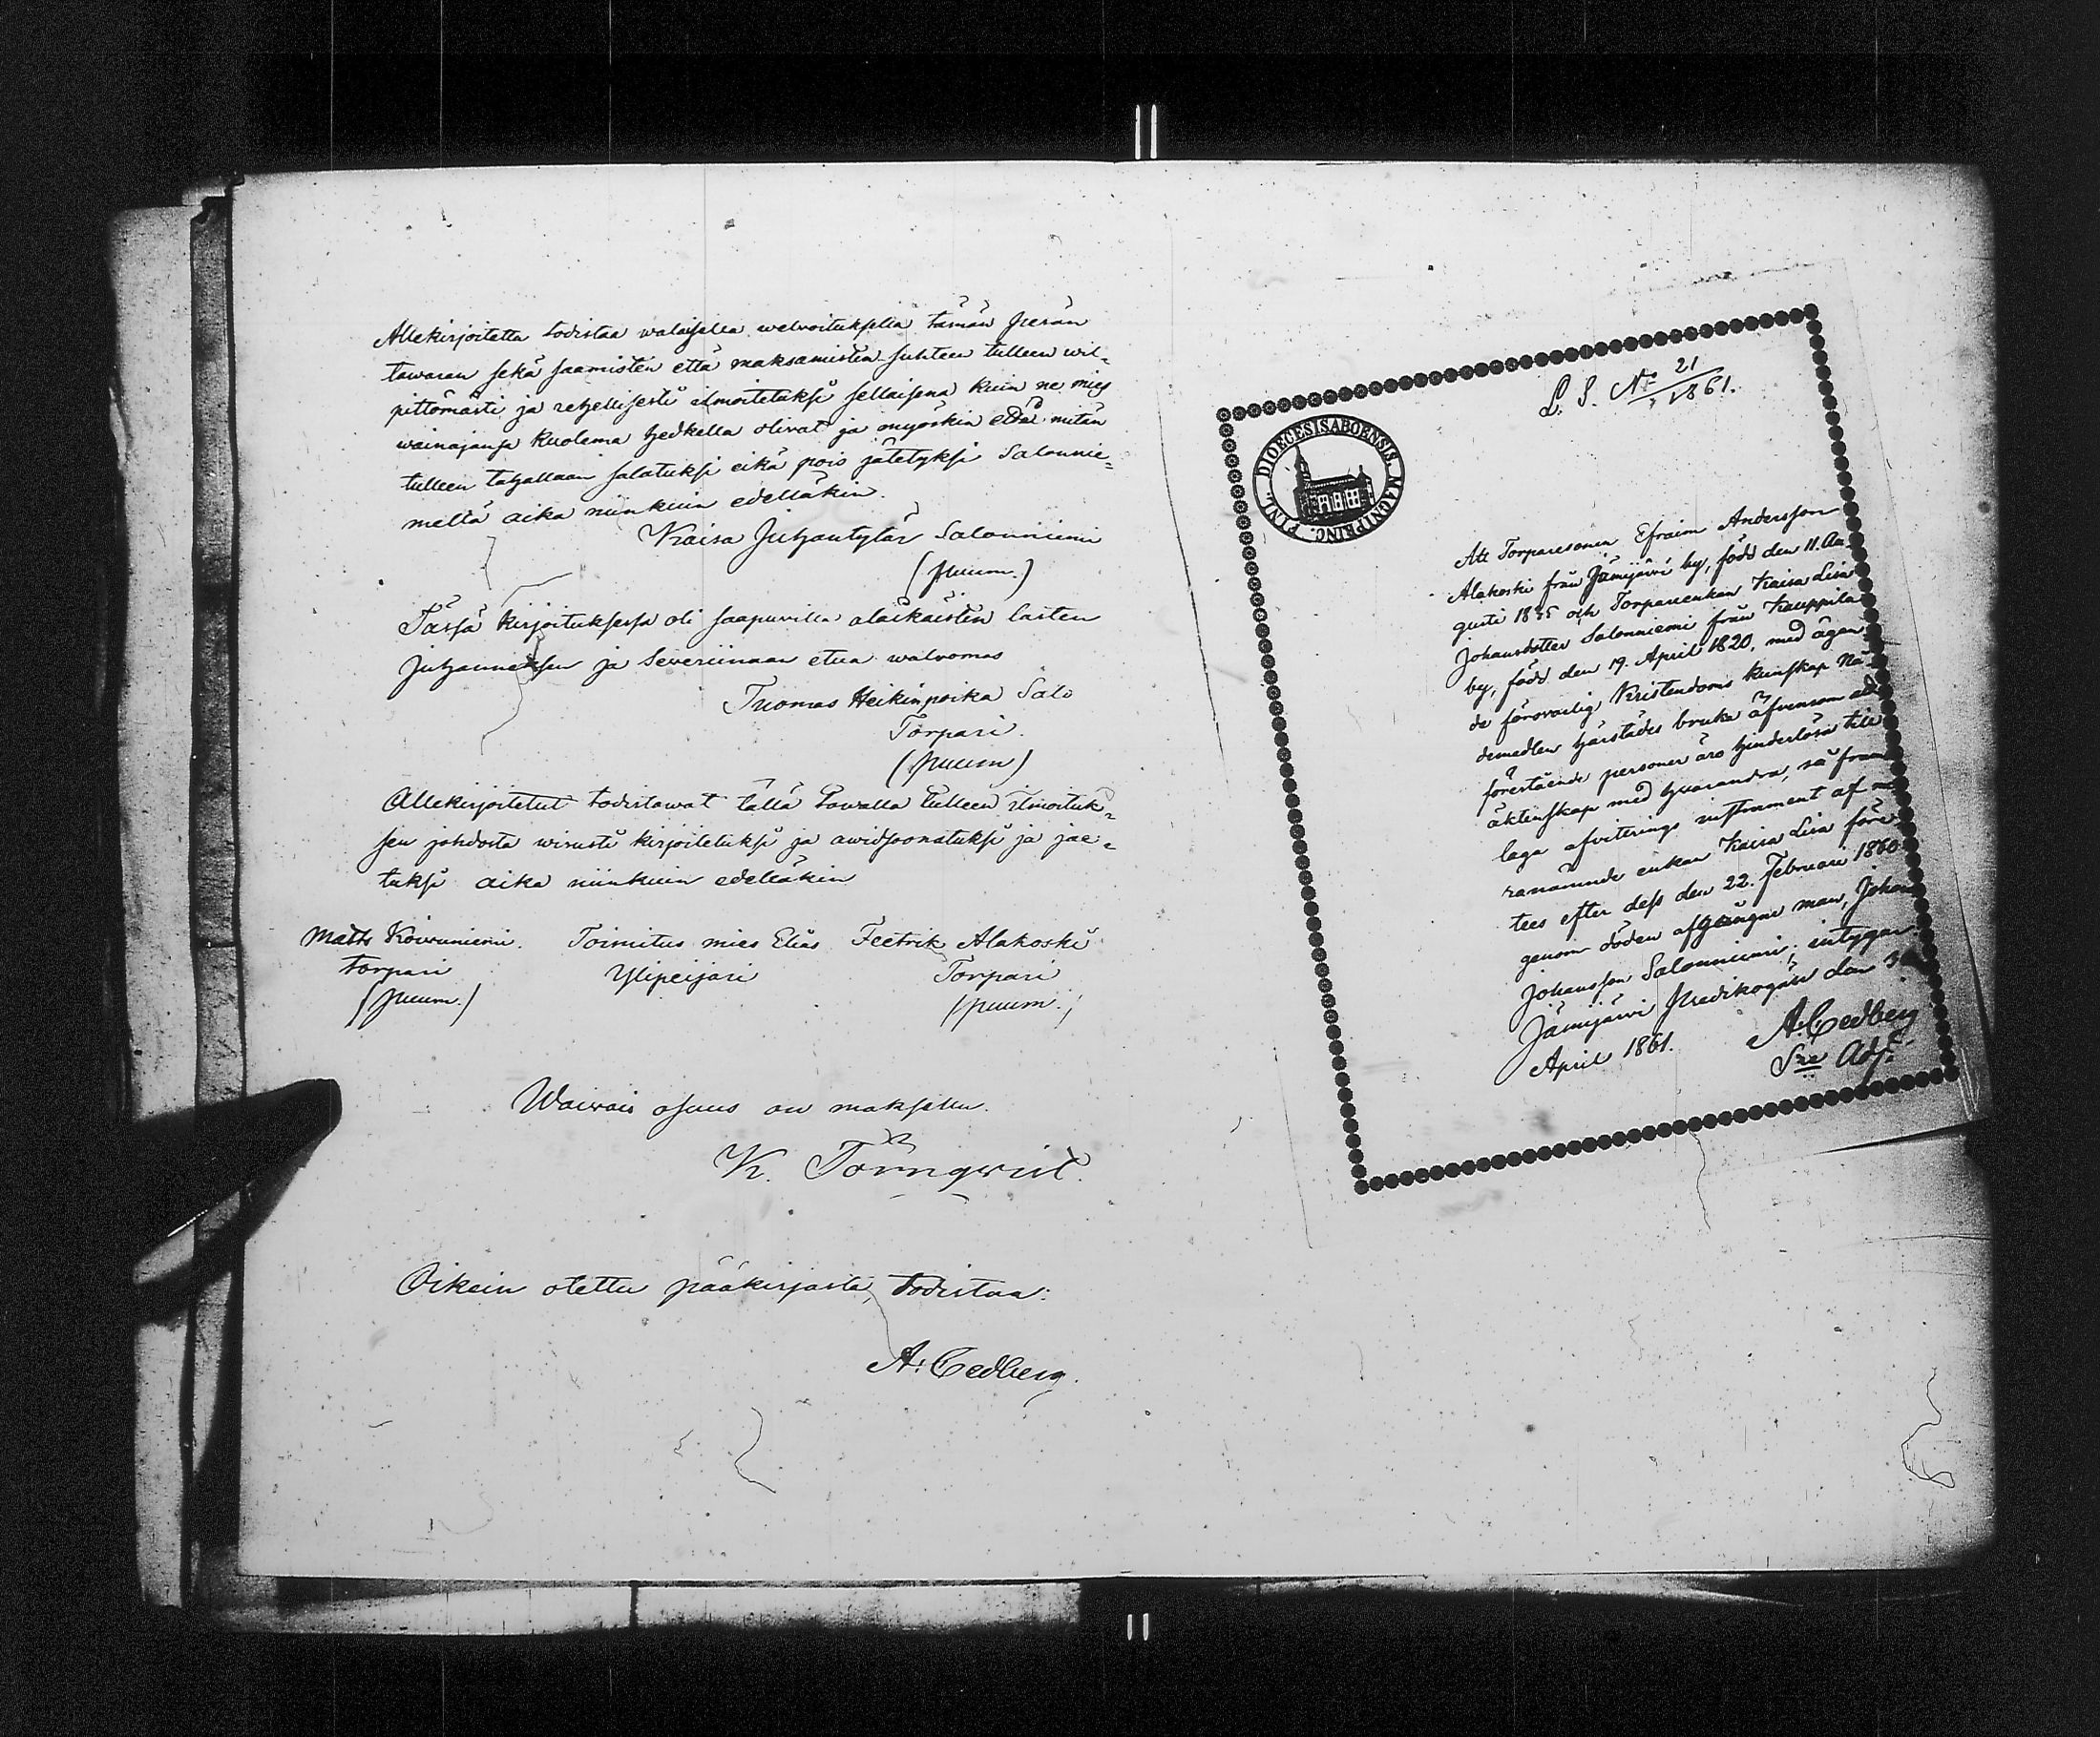 Allekirjoitettu todistaa walaisella welwoituksella tämän Perän
tawaran sekä saamisten että maksamisten suhteen tulleen wil-
pittömästi ja rehellisesti ilmoitetuksi sellaisena kuin ne mies
wainajansa kuoleman hedkellä oliwat ja myöskin ettei mitän
tulleen tahallaan salatuksi eikä pois jätetyksi Salonnie-
mellä aika niinkuin edelläkin.
Kaisa Juhantytär Salonniemi
(puum.)
Tässä kirjoituksessa oli saapuvilla alaikäisten lasten
Juhanneksen ja Severiinaan etua walvomas
Tuomas Heikinpoika Salo
Torpari.
(puum)
Allekirjoitetut todistawat tällä tawalla tulleen ilmoituk-
sen johdosta wirusti kirjoitetuksi ja awidsoonatuksi ja jae-
tuksi aika niinkuin edelläkin
Matts Koivuniemi. Toimitus mies Elias Feetrik Alakoski
torpari Ylipeijari Torpari
(puum.) (puum.)
Waiwais osuus on maksettu.
K. Törnqvist.
Oikein otettu pääkirjasta, todistaa:
A. Cedberg.
L. S. No 21/1861.
DIOECESIS ABOENSIS. MAGNI PRINC. FINL.
Att Torparesonen Efraim Andersson
Alakoski från Jämijärvi by, född den 11. Au-
gusti 1835 och Torpareenkan Kaisa Lisa
Johansdotter Salonniemi från Kauppila
by, född den 19. April 1820, med ägan-
de försvarlig Kristendoms kunskap Nå-
demedlen härstädes bruka äfvensom att
förestående personer äro hinderlösa till
äktenskap med hvarandra, så fram
laga afvittrings instrument af
ranämnde enkan Kaisa Lisa före-
tees efter dess den 22. Februari 1860
genom döden afgångne man, Johan
Johansson Salonniemi, intygar.
Jämijärvi Predikogård den
April 1861.
A. Cedberg
Sre Adj.